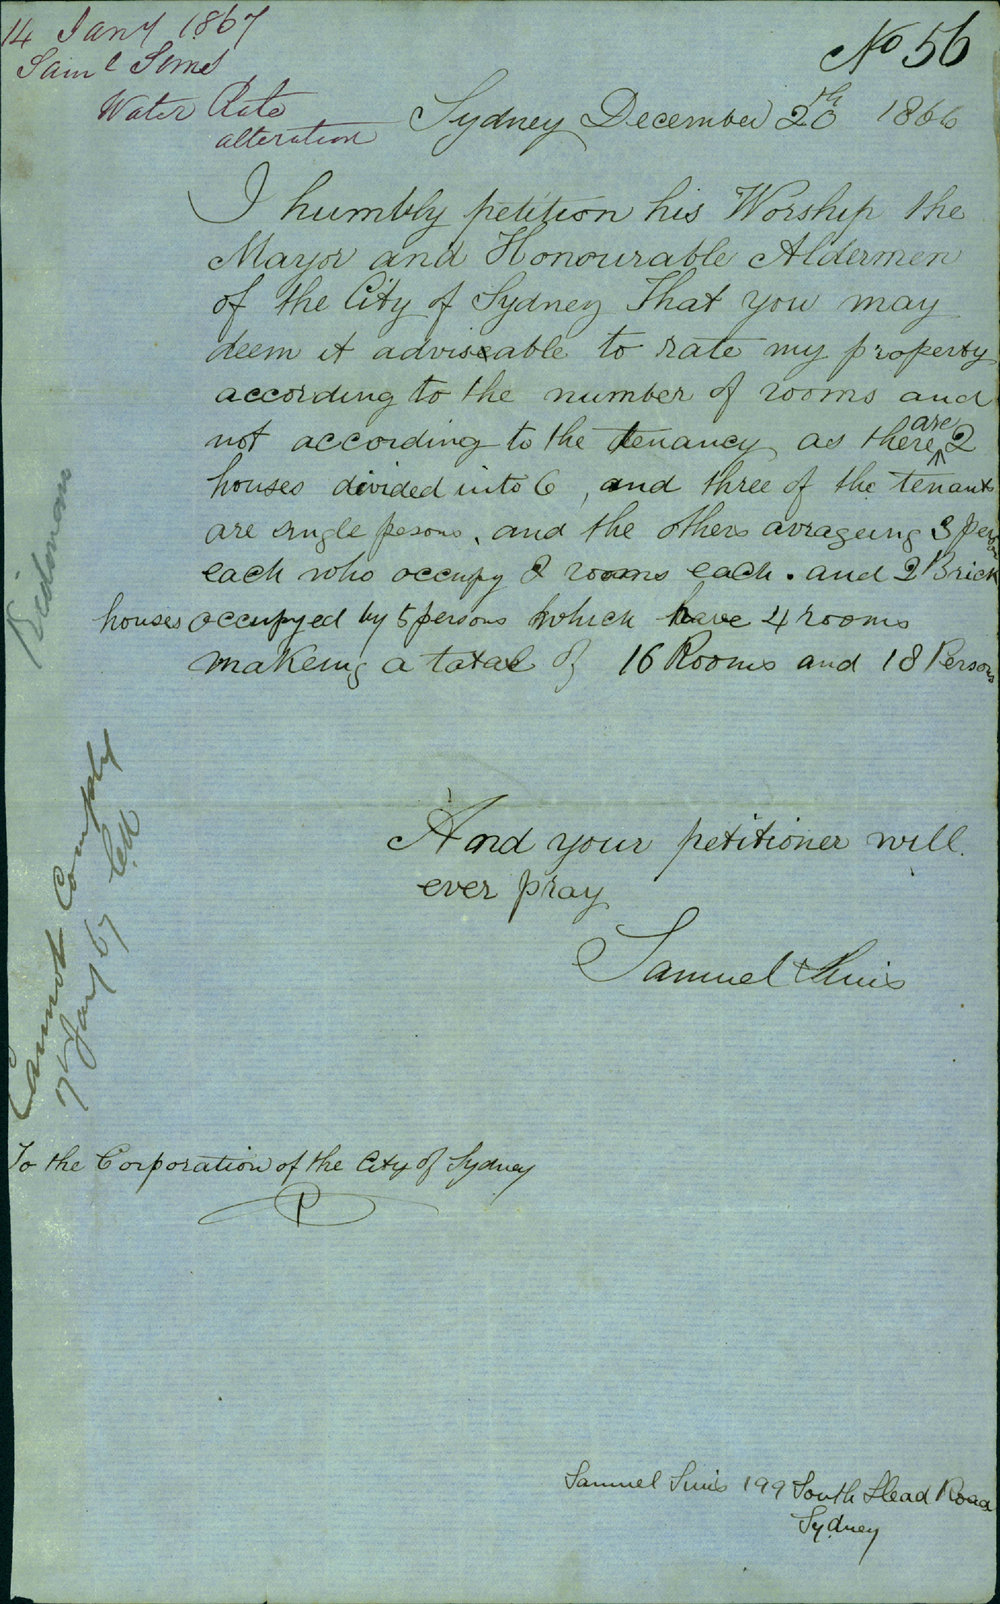 14 Jany 1867
Saml Sims
Water Rate
alteration
No 56
Sydney December 20th 1866
I humbly petition his Worship the
Mayor and Honourable Aldermen
of the City of Sydney That you may
deem it adviseable to rate my property
according to the number of rooms and
not according to the tenancy as there are 2
houses divided into 6, and three of the tenants
are single persons, and the others avrageing 3 person
each who occupy 2 rooms each. and 2 Brick
houses occupyed by 5 persons which have 4 rooms
makeing a total of 16 Rooms and 18 Persons
And your petitioner will
ever pray
Samuel Sims
Cannot Comply
17 Jany 67
To the Corporation of the City of Sydney
Samuel Sims 199 South Head Road
Sydney